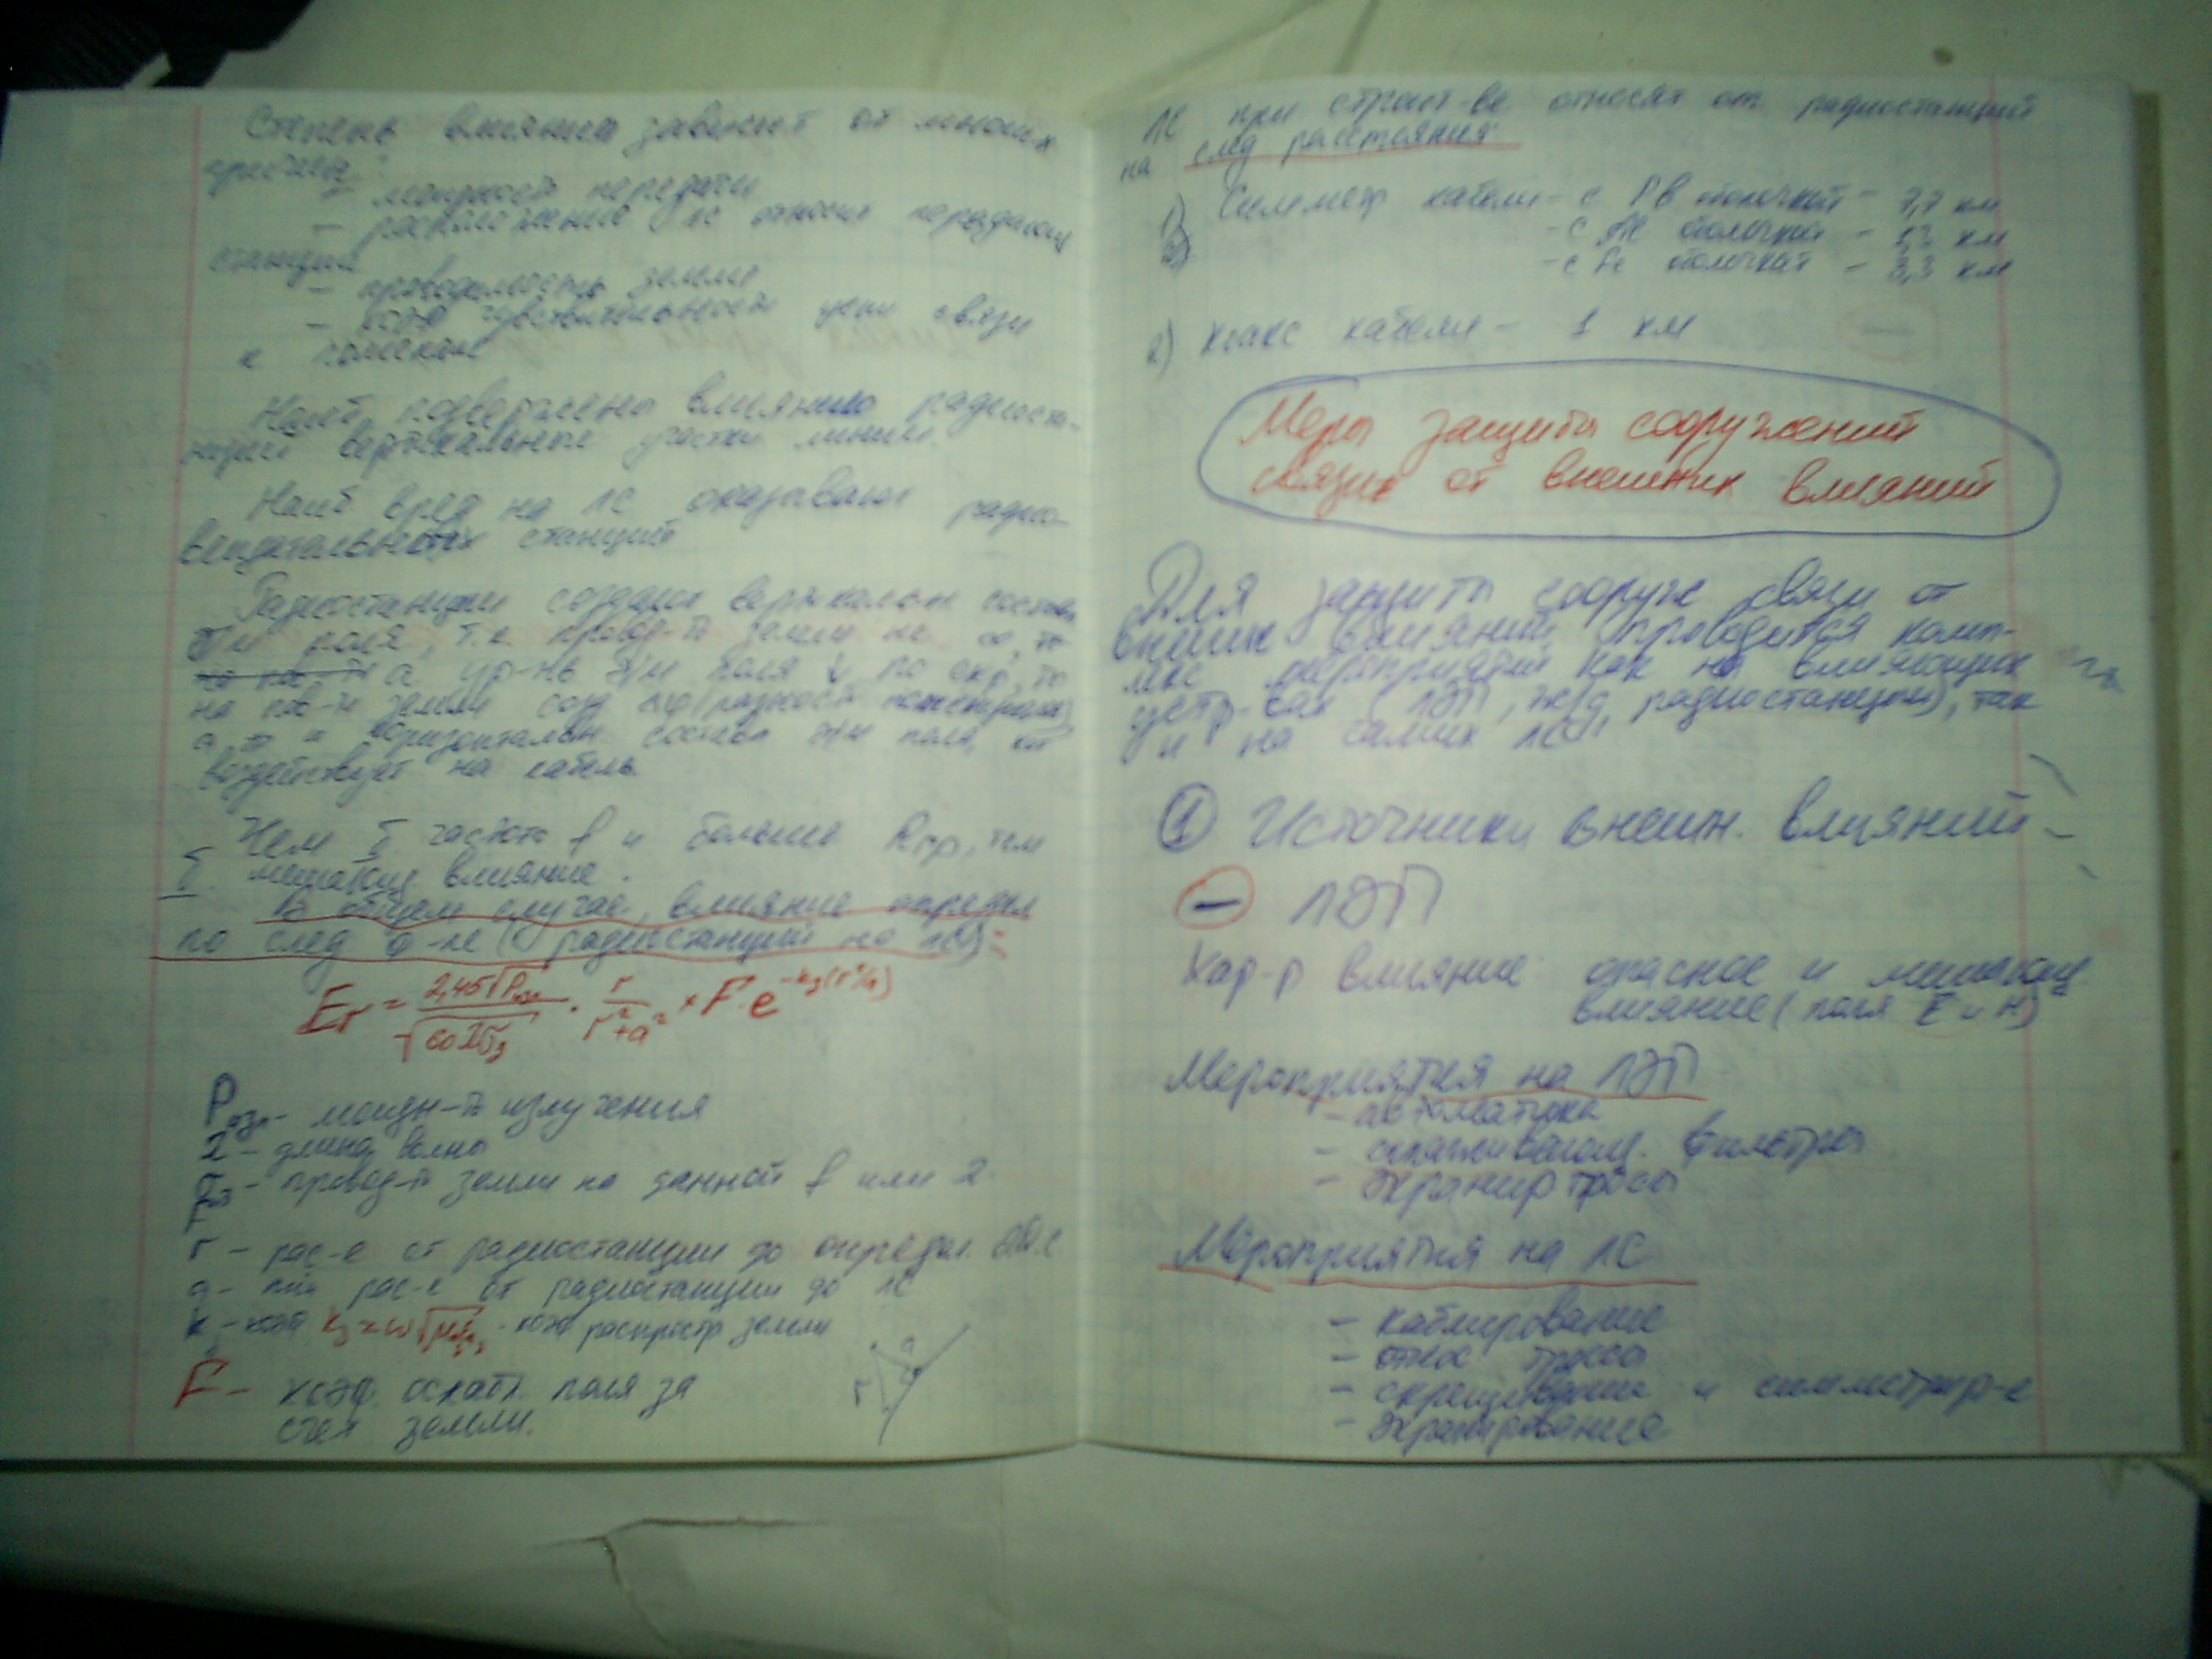 Степень влияния зависит от многих
причин:
- мощность передачи
- расположение лс относит передающ
станции
- проводимость земли
- коэф чувствительности цепи связи
к помехам
Наиб подвержены влиянию радиоста-
нций вертикальные участки линии.
Наиб вред на ЛС оказывают радио-
вещательных станций
Радиостанции создают вертикальн состав
э/м поля, т.к провод-ть земли не ∞, то
а ур-нь э/м поля
на пов-ти земли созд (разность потенциалов)
а и горизонтальн состав э/м поля, кот
воздействует на кабель.
Чем б частота f и больше Rпр, тем
б. мешающ влияние.
В общем случае, влияние определ
по след ф-ле (радиостанций на ЛС):
P изл - мощн-ть излучения
λ - длина волны
σз - провод-ть земли на данной f или λ
r - рас-е от радиостанции до определ.
a - рас-е от радиостанции до ЛС
коэф распростр земли
F - коэф ослабл. поля за
счет земли.
ЛС при строит-ве относят от радиостанций
на след расстояния:
1) Симметр кабели - с Pb оболочкой -
- с Al оболочкой - км
- с Fe оболочкой - км
2) Коакс кабели - 1 км
Меры защиты сооружений
связи от внешних влияний
Для защиты сооруж связи от
внешних влияний проводится комп-
лекс мероприятий как на влияющих
устр-вах (ЛЭП, ж/д, радиостанции), так
и на самих ЛС
1 Источники внешн. влияний -
- ЛЭП
Хар-р влияние: опасное и мешающ.
влияние (поля E и H)
Мероприятия на ЛЭП
- автоматика
- сглаживающ. фильтры
- экранир тросы
Мероприятия на ЛС
- каблирование
- относ трассы
- скрещивание и симметрир-е
- экранирование